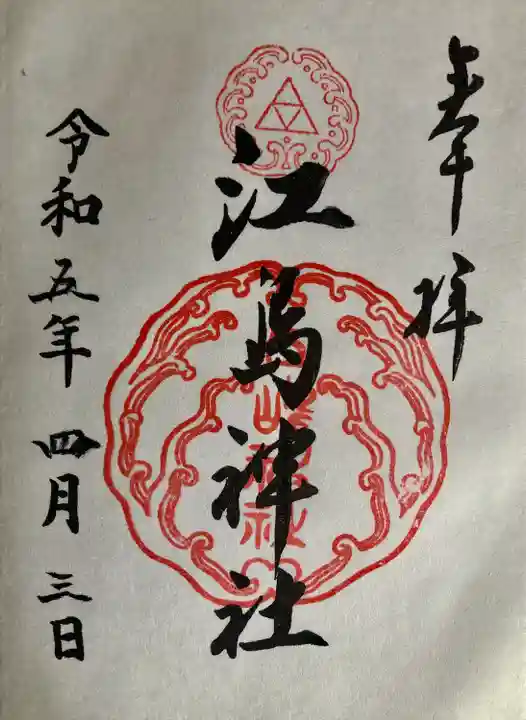 奉拝
江島神社
令和五年 四月 三日